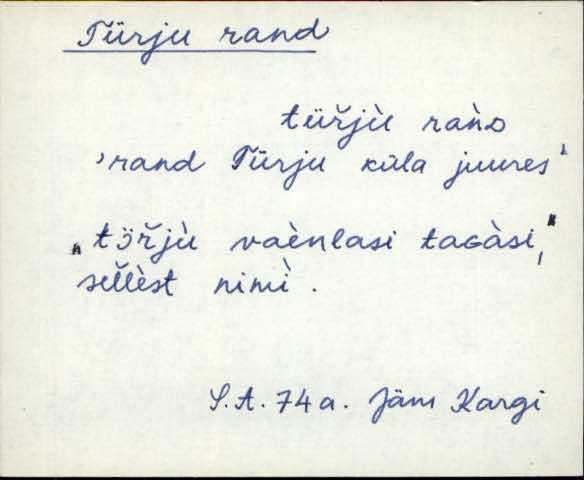 Türju rand
tüřjù rànᴅ
'rand Türju küla juures'
„tö̬řjù vaènlasi taɢàsi,"
sèl̆lèst nimì.
S.A. 74a. Jäm Kargi